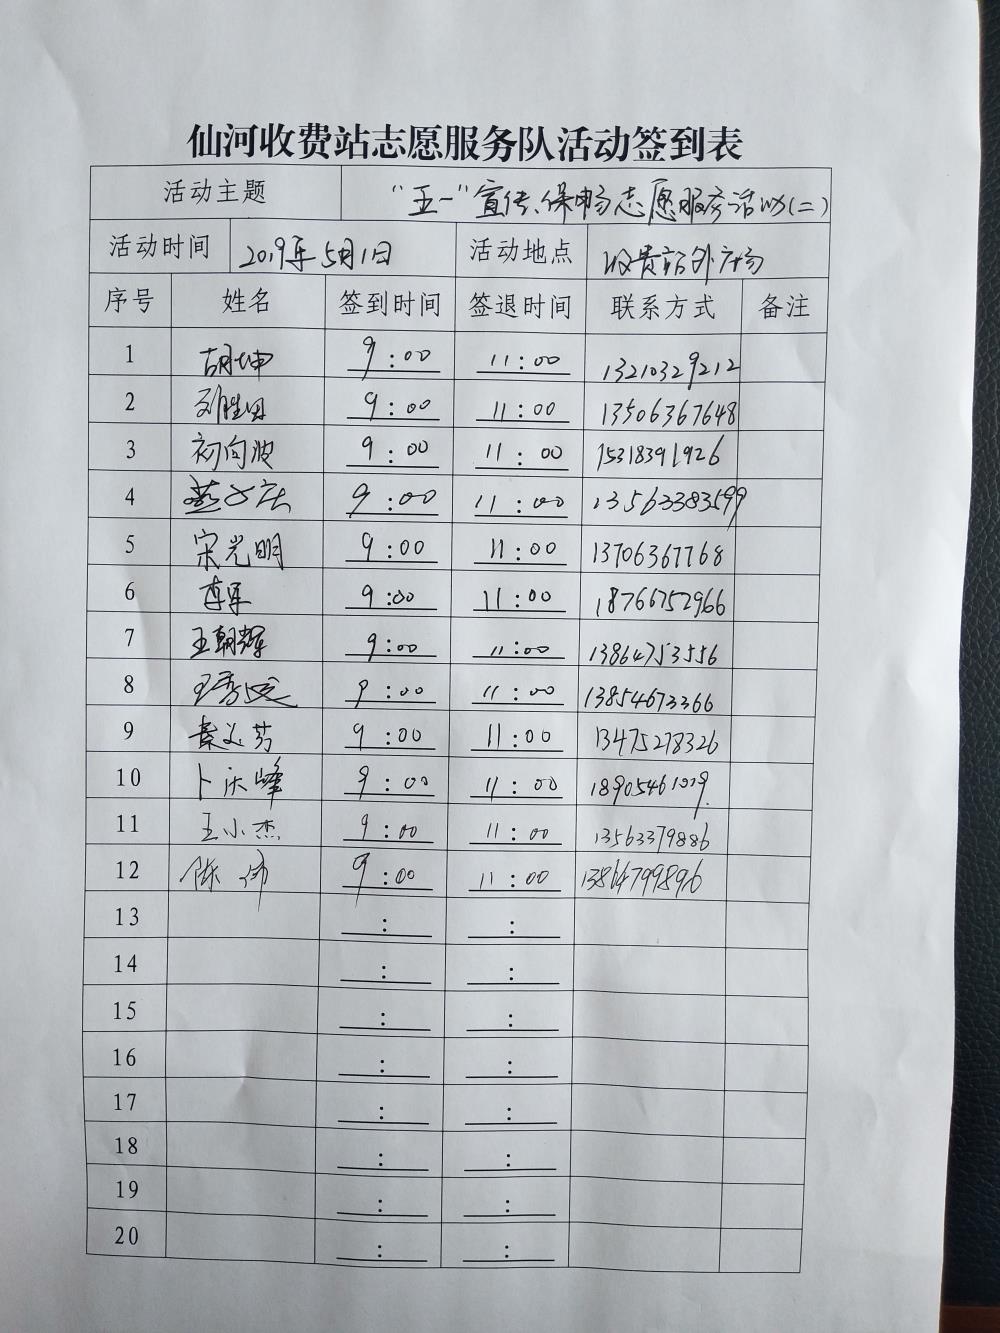 仙河收费站志愿服务队活动签到表
活动主题 "五一"宣传、保畅志愿服务活动(二)
活动时间 2019年5月1日 活动地点 收费站外广场
序号 姓名 签到时间 签退时间 联系方式 备注
1 胡坤 9:00 11:00 13210329212
2 刘胜田 9:00 11:00 13506367648
3 初向波 9:00 11:00 15318391926
4 9:00 11:00 13563383599
5 宋光明 9:00 11:00 13706367768
6 李军 9:00 11:00 18766752966
7 王朝辉 9:00 11:00 13864753556
8 9:00 11:00 13854673366
9 9:00 11:00 13475278326
10 卜庆峰 9:00 11:00 18905461019
11 王小杰 9:00 11:00 13563379886
12 陈伟 9:00 11:00 13864799896
13 : :
14 : :
15 : :
16 : :
17 : :
18 : :
19 : :
20 : :